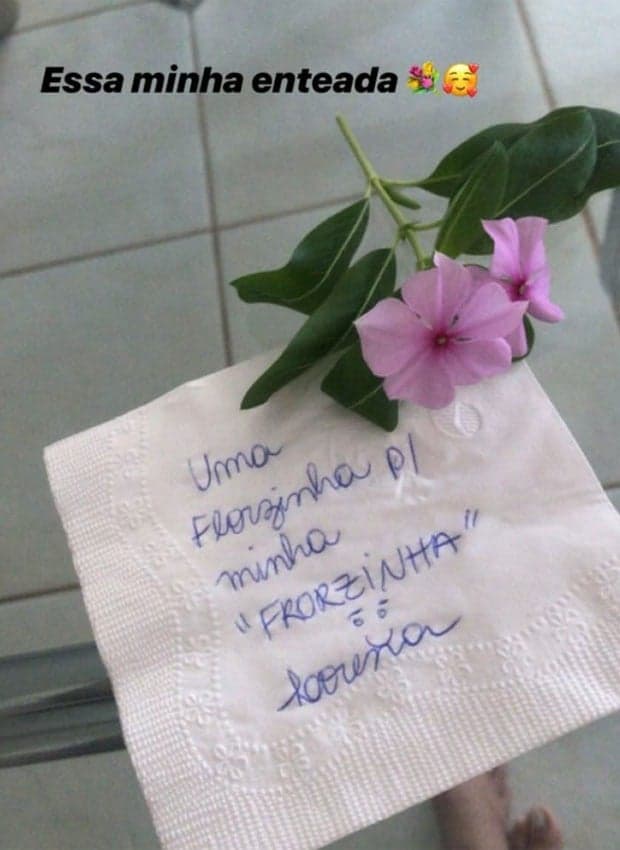 Essa minha enteada 💐🥰
Uma
Florzinha p/
minha
"FRORZiNHA"